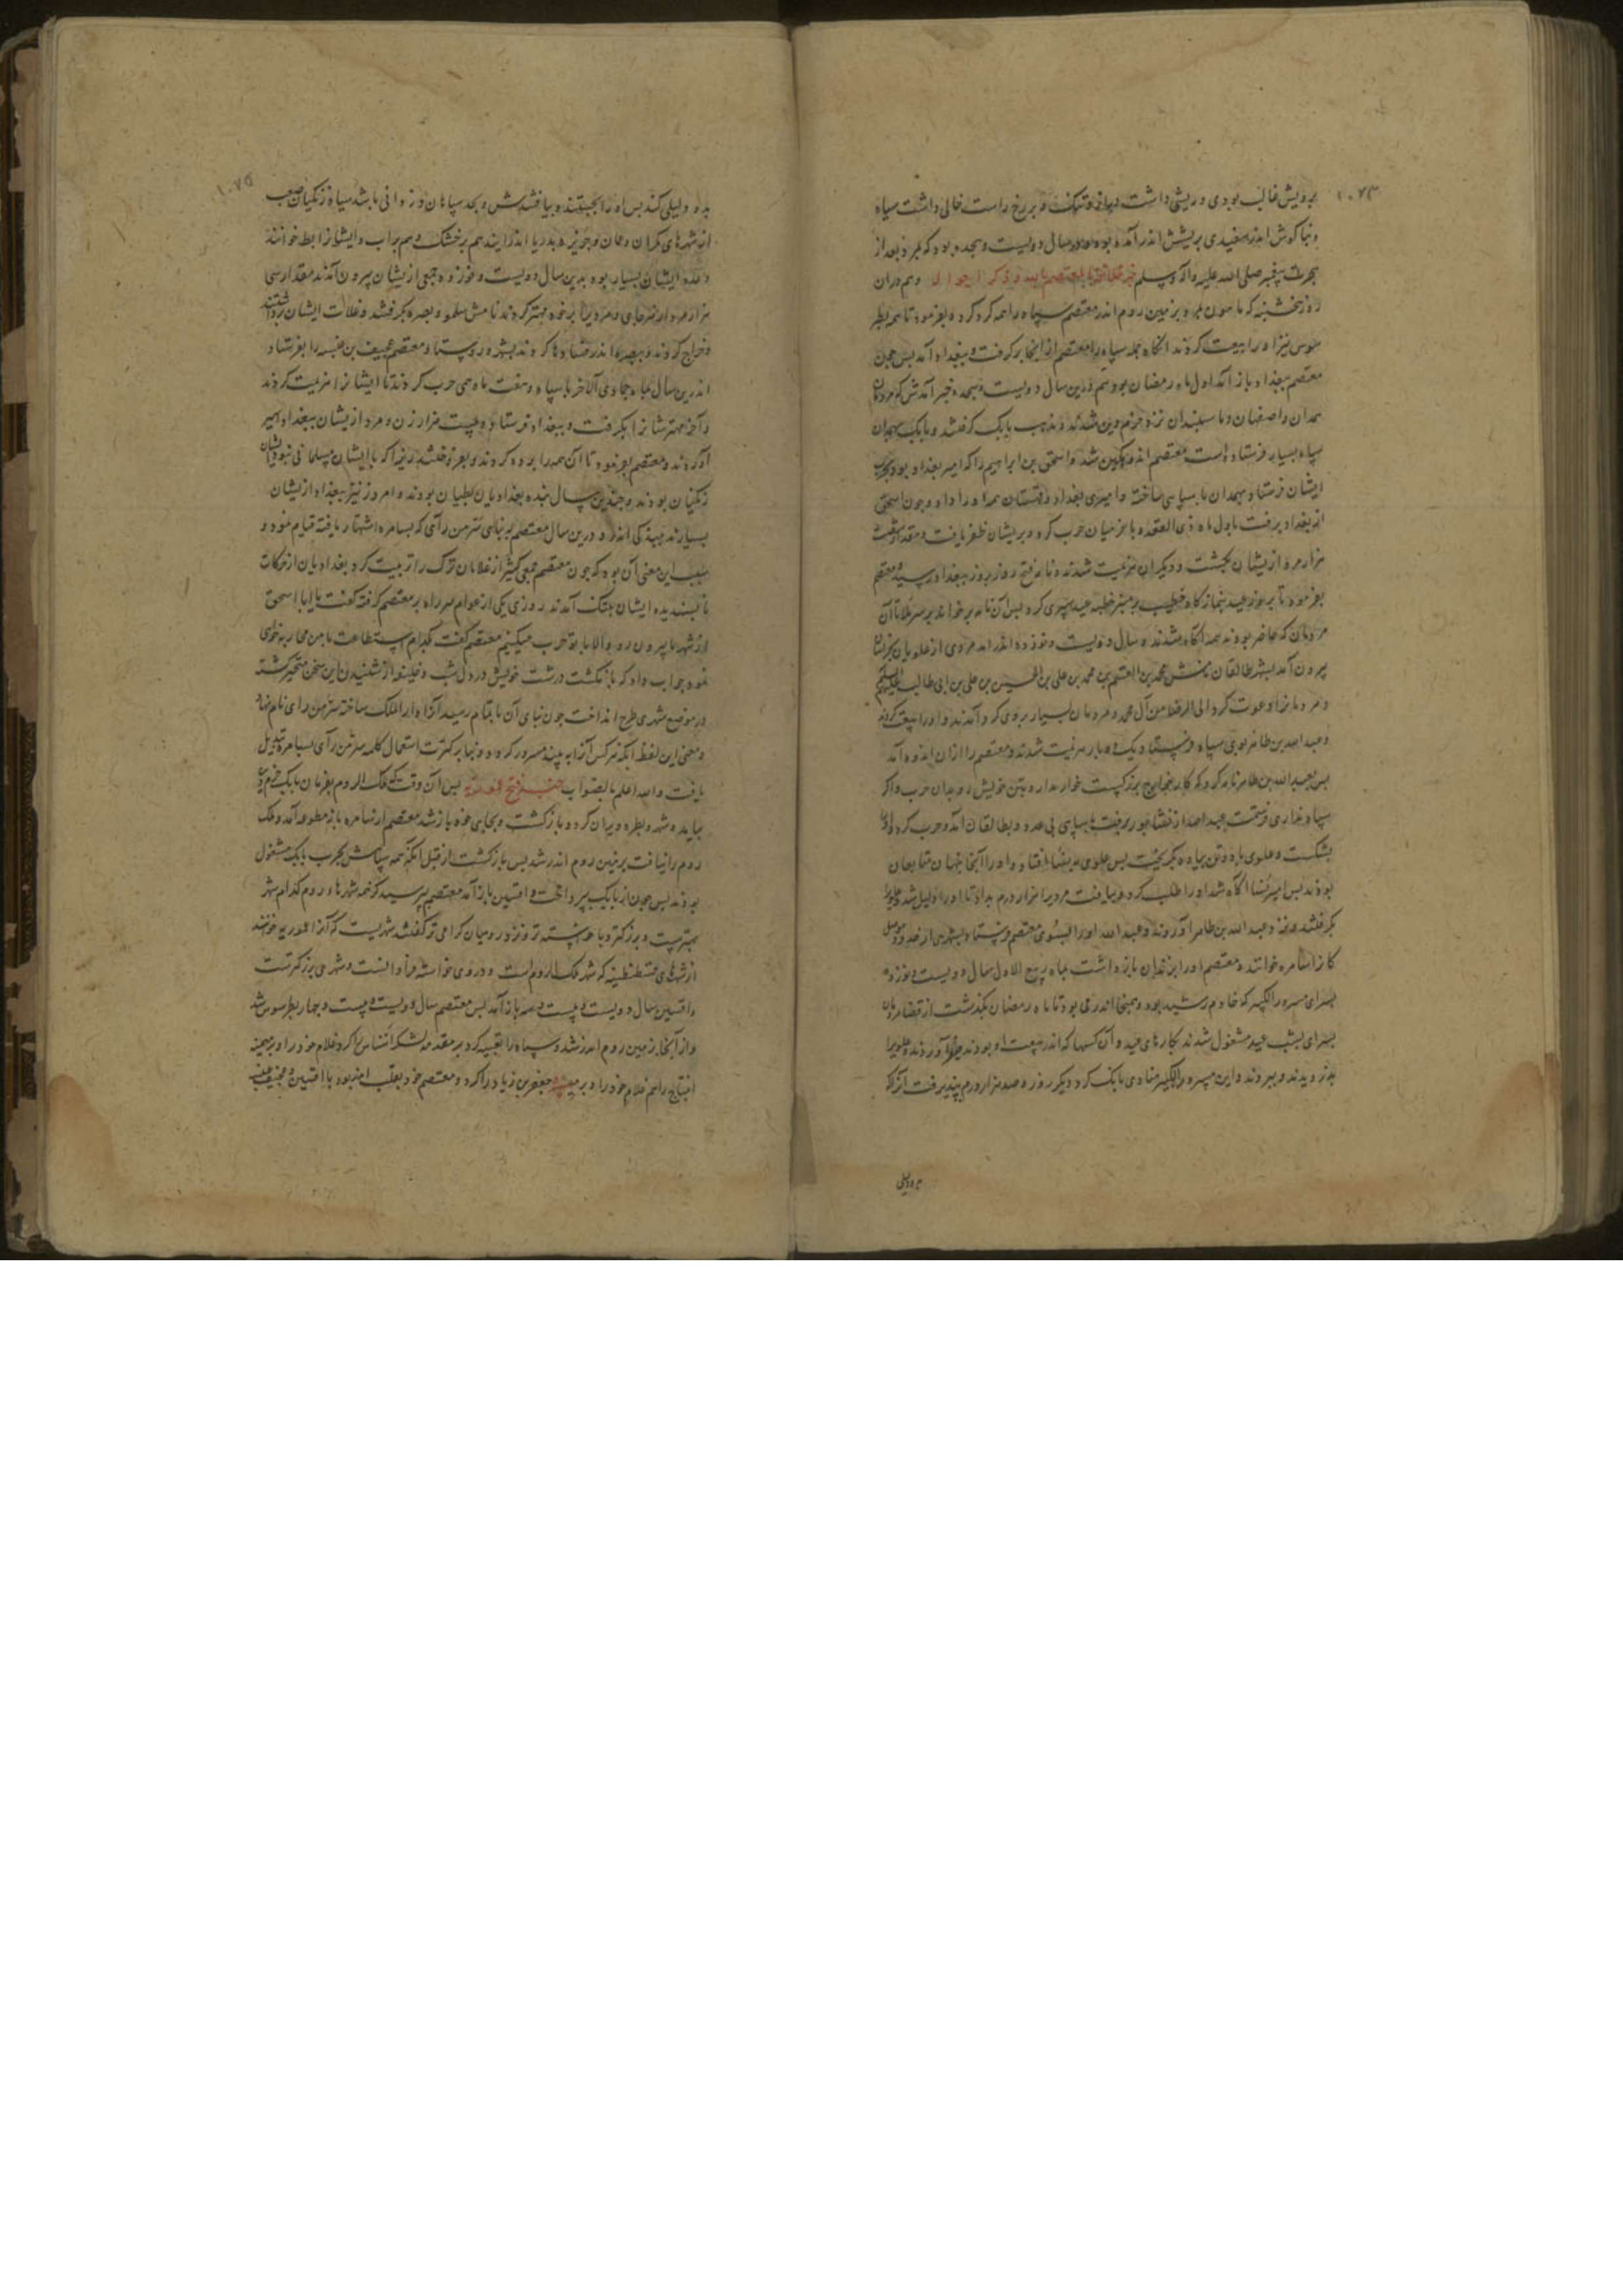 ۱۰۷۴
برویش غالب بودی و ریشی داشت دراز و تنک و بر رخ راست خالی داشت سیاه
و بنا کوش اندر سفیدی بریشش اندر آمده بود سال دویست و هجده بود که بمرد بعد از
هجرت پیغمبر صلی الله علیه و آله وسلم خبر خلافت المعتصم بالله و ذکر احوال او و هم در آن
روز پنجشنبه که مامون بمرد بزمین روم اندر معتصم سپاه را همه کرد کرد و بفرمود تا همه
نیز او را بیعت کردند آنکاه جمله سپاه را معتصم از آنجا برکرفت و ببغداد آمد بس چون
معتصم ببغداد باز آمد اول ماه رمضان بود و هم درین سال دویست و هجده خبر آمدش که مردمان
همدان و اصفهان و ماسبندان نزد خرم دین شدند و مذهب بابک کرفتند و بابک بهمدان
سپاه بسیار فرستاده است معتصم اندوهکین شد و اسحق بن ابراهیم را که امیر بغداد بود بحرب
ایشان فرستاد بهمدان با سپاهی ساخته و امیری بغداد و قهستان همه او را داد و چون اسحق
از بغداد برفت باول ماه ذی القعده با خرمیان حرب کرد و بریشان ظفر یافت و مقدار شصت
هزار مرد ازیشان بکشت و دیکران هزیمت شدند و نامه فتح روز بروز ببغداد رسید و معتصم
بفرمود تا بروز عید بنمازکاه خطیب بر منبر خطبه عید سپری کرد بس آن نامه برخواند بر سر خلایق آن
مردمان که حاضر بودند همه آکاه شدند و سال دویست و نوزده اندر آمد مردی از علویان بخراسان
بیرون آمد بشهر طالقان نامش محمد بن القسم بن محمد بن علی بن الحسین بن علی بن ابی طالب علیهم السلم
و مردمانرا دعوت کرد الی الرضا من آل محمد و مردمان بسیار بروی کرد آمدند و او را بیعت کردند
و عبد الله بن طاهر بوی سپاه فرستاد یک دو بار هزیمت شدند و معتصم را از آن اندوه آمد
بس بعبد الله بن طاهر نامه کرد که کار خوارج بزرکیست خوار مدار و بتن خویش رو بدان حرب و اکر
سپاه نداری فرستمت عبد الله از نشابور برفت با سپاهی بی عدد و بطالقان آمد و حرب کرد و او را
بشکست و علوی با دو تن پیاده بکریخت بس علوی بنسا افتاد و او را آنجا پنهان متابعان
بودند بس امیر نسا آکاه شد او را طلب کرد و نیافت مردیرا هزار درم بداد تا او را دلیل شد و علویرا
بکرفتند و نزد عبد الله بن طاهر آوردند و عبد الله او را بسوی معتصم فرستاد بشهری از حد موصل
که آنرا سامره خوانند و معتصم او را بزندان باز داشت بماه ربیع الاول سال دویست و نوزده
بسرای مسرور الکبیر که خادم رشید بود و همانجا اندر می بود تا ماه رمضان بکذشت از قضا مردمان
بسرای بشب عید مشغول شدند بکارهای عید و آن کسها که اندر بیعت او بودند حیله آوردند و علویرا
بدزدیدند و ببردند و این مسرور الکبیر منادی بانک کرد و دیکر روز و صد هزار درم بپذیرفت آنرا که
برو دلیلی
۱۰۷۵
برو دلیلی کند بس او را بجستند و نیافتندش و بحد سپاهان و زوانی باشد سیاه زنکیان صعب
از شهرهای مکران و عمان و جزیره بدریا اندر ایند هم بر خشک و هم بر آب و ایشانرا بط خوانند
و عدد ایشان بسیار بود بدین سال دویست و نوزده جمعی ازیشان بیرون آمدند مقدار سی
هزار مرد از هر جای و مردیرا بر خود مهتر کردند نامش سلمو و بصره بکرفتند و غلات ایشان برداشتند
و خراج کردند و ببصره اندر فسادها کردند بشهر و روستا و معتصم عجیف بن عنبسه را بفرستاد
اندرین سال بماه جمادی الآخر با سپاه و هفت ماه همی حرب کردند تا ایشانرا هزیمت کردند
و آخر مهترشانرا بکرفت و ببغداد فرستاد و بیست هزار زن و مرد ازیشان ببغداد اسیر
آوردند و معتصم بفرمود تا آن همه را برده کردند و بفروختند زیرا که با ایشان مسلمانی نبود ایشان
زنکیان بودند و چندین سال بنده بغدادیان بطیان بودند و امروز نیز ببغداد ازیشان
بسیارند ببندکی اندر و درین سال معتصم بر بنای سر من رآی که بسامره اشتهار یافته قیام نمود و
سبب این معنی آن بود که چون معتصم جمعی کثیر از غلامان ترک را تربیت کرد بغدادیان از حرکات
ناپسندیده ایشان بتنک آمدند روزی یکی از عوام سر راه بر معتصم کرفته کفت یا ابا اسحق
از شهر ما بیرون رو و الا با تو حرب میکنیم معتصم کفت بکدام استطاعت با من محاربه خواهی
نمود جواب داد که بانکشت درشت خویش در دل شب و خلیفه از شنیدن این سخن متحیر کشته
در موضع شهری طرح انداخت چون بنای آن باتمام رسید آنرا دار الملک ساخته سر من رای نام نهاد
و معنی این لفظ آنکه هر کس آنرا ببیند مسرور کردد و بنا بر کثرت استعمال کلمه سر من رآی بسامره تبدیل
یافت و الله اعلم بالصواب خبر فتح عموریه بس آن وقت که ملک الروم بفرمان بابک خرم دین
بیامد و شهر زبطره ویران کرد و باز کشت و بجای خود باز شد معتصم از سامره بزبطره آمد و ملک
روم را نیافت بزمین روم اندر شد بس باز کشت از قبل آنکه همه سپاهش بحرب بابک مشغول
بودند بس چون از بابک بپرداخت و افشین باز آمد معتصم پرسید که خود شهرهاء روم کدام شهر
بهترست و بزرکتر و با خواسته تر و نزد رومیان کرامی تر کفتند شهریست که آنرا عموریه خوانند
از شهرهای قسطنطینه که شهر ملک الروم است و در وی خواسته فراوانست و شهری بزرکترست
و افشین بسال دویست و بیست و سه باز آمد بس معتصم سال دویست و بیست و چهار بطرسوس شد
و از آنجا بزمین روم اندر شد و سپاه را تعبیه کرد بر مقدمه لشکر اشناس را کرد غلام خود را و بر میمنه
ایتاخ را هم غلام خود را و بر میسره جعفر بن زیاد را کرد و معتصم خود بقلب اندر بود با افشین و عجیف عنبسه